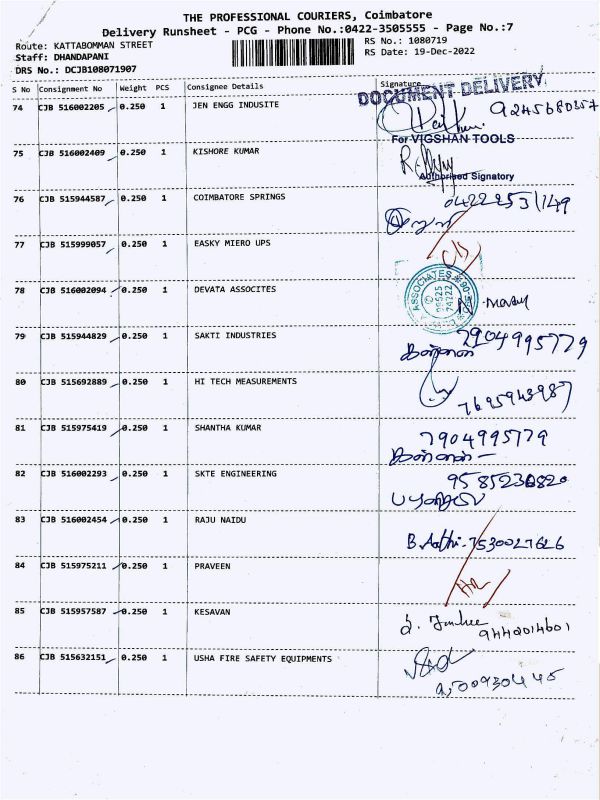 THE PROFESSIONAL COURIERS, Coimbatore
Delivery Runsheet - PCG - Phone No.:0422-3505555 - Page No.:7
Route: KATTABOMMAN STREET
Staff: DHANDAPANI
DRS No.: DCJB108071907
RS No.: 1080719
RS Date: 19-Dec-2022
S No Consignment No Weight PCS Consignee Details Signature
DOCUMENT DELIVERY
74 CJB 516002205 0.250 1 JEN ENGG INDUSITE 9245680257
For VIGSHAN TOOLS
75 CJB 516002409 0.250 1 KISHORE KUMAR
Authorised Signatory
76 CJB 515944587 0.250 1 COIMBATORE SPRINGS 04222531149
77 CJB 515999057 0.250 1 EASKY MIERO UPS
78 CJB 516002094 0.250 1 DEVATA ASSOCITES
ASSOCIATES
79 CJB 515944829 0.250 1 SAKTI INDUSTRIES 7904995779
80 CJB 515692889 0.250 1 HI TECH MEASUREMENTS
7695943987
81 CJB 515975419 0.250 1 SHANTHA KUMAR 7904995779
82 CJB 516002293 0.250 1 SKTE ENGINEERING 9585230820
83 CJB 516002454 0.250 1 RAJU NAIDU
B. Aathi-7530027626
84 CJB 515975211 0.250 1 PRAVEEN
85 CJB 515957587 0.250 1 KESAVAN
9442014601
86 CJB 515632151 0.250 1 USHA FIRE SAFETY EQUIPMENTS
9500930445